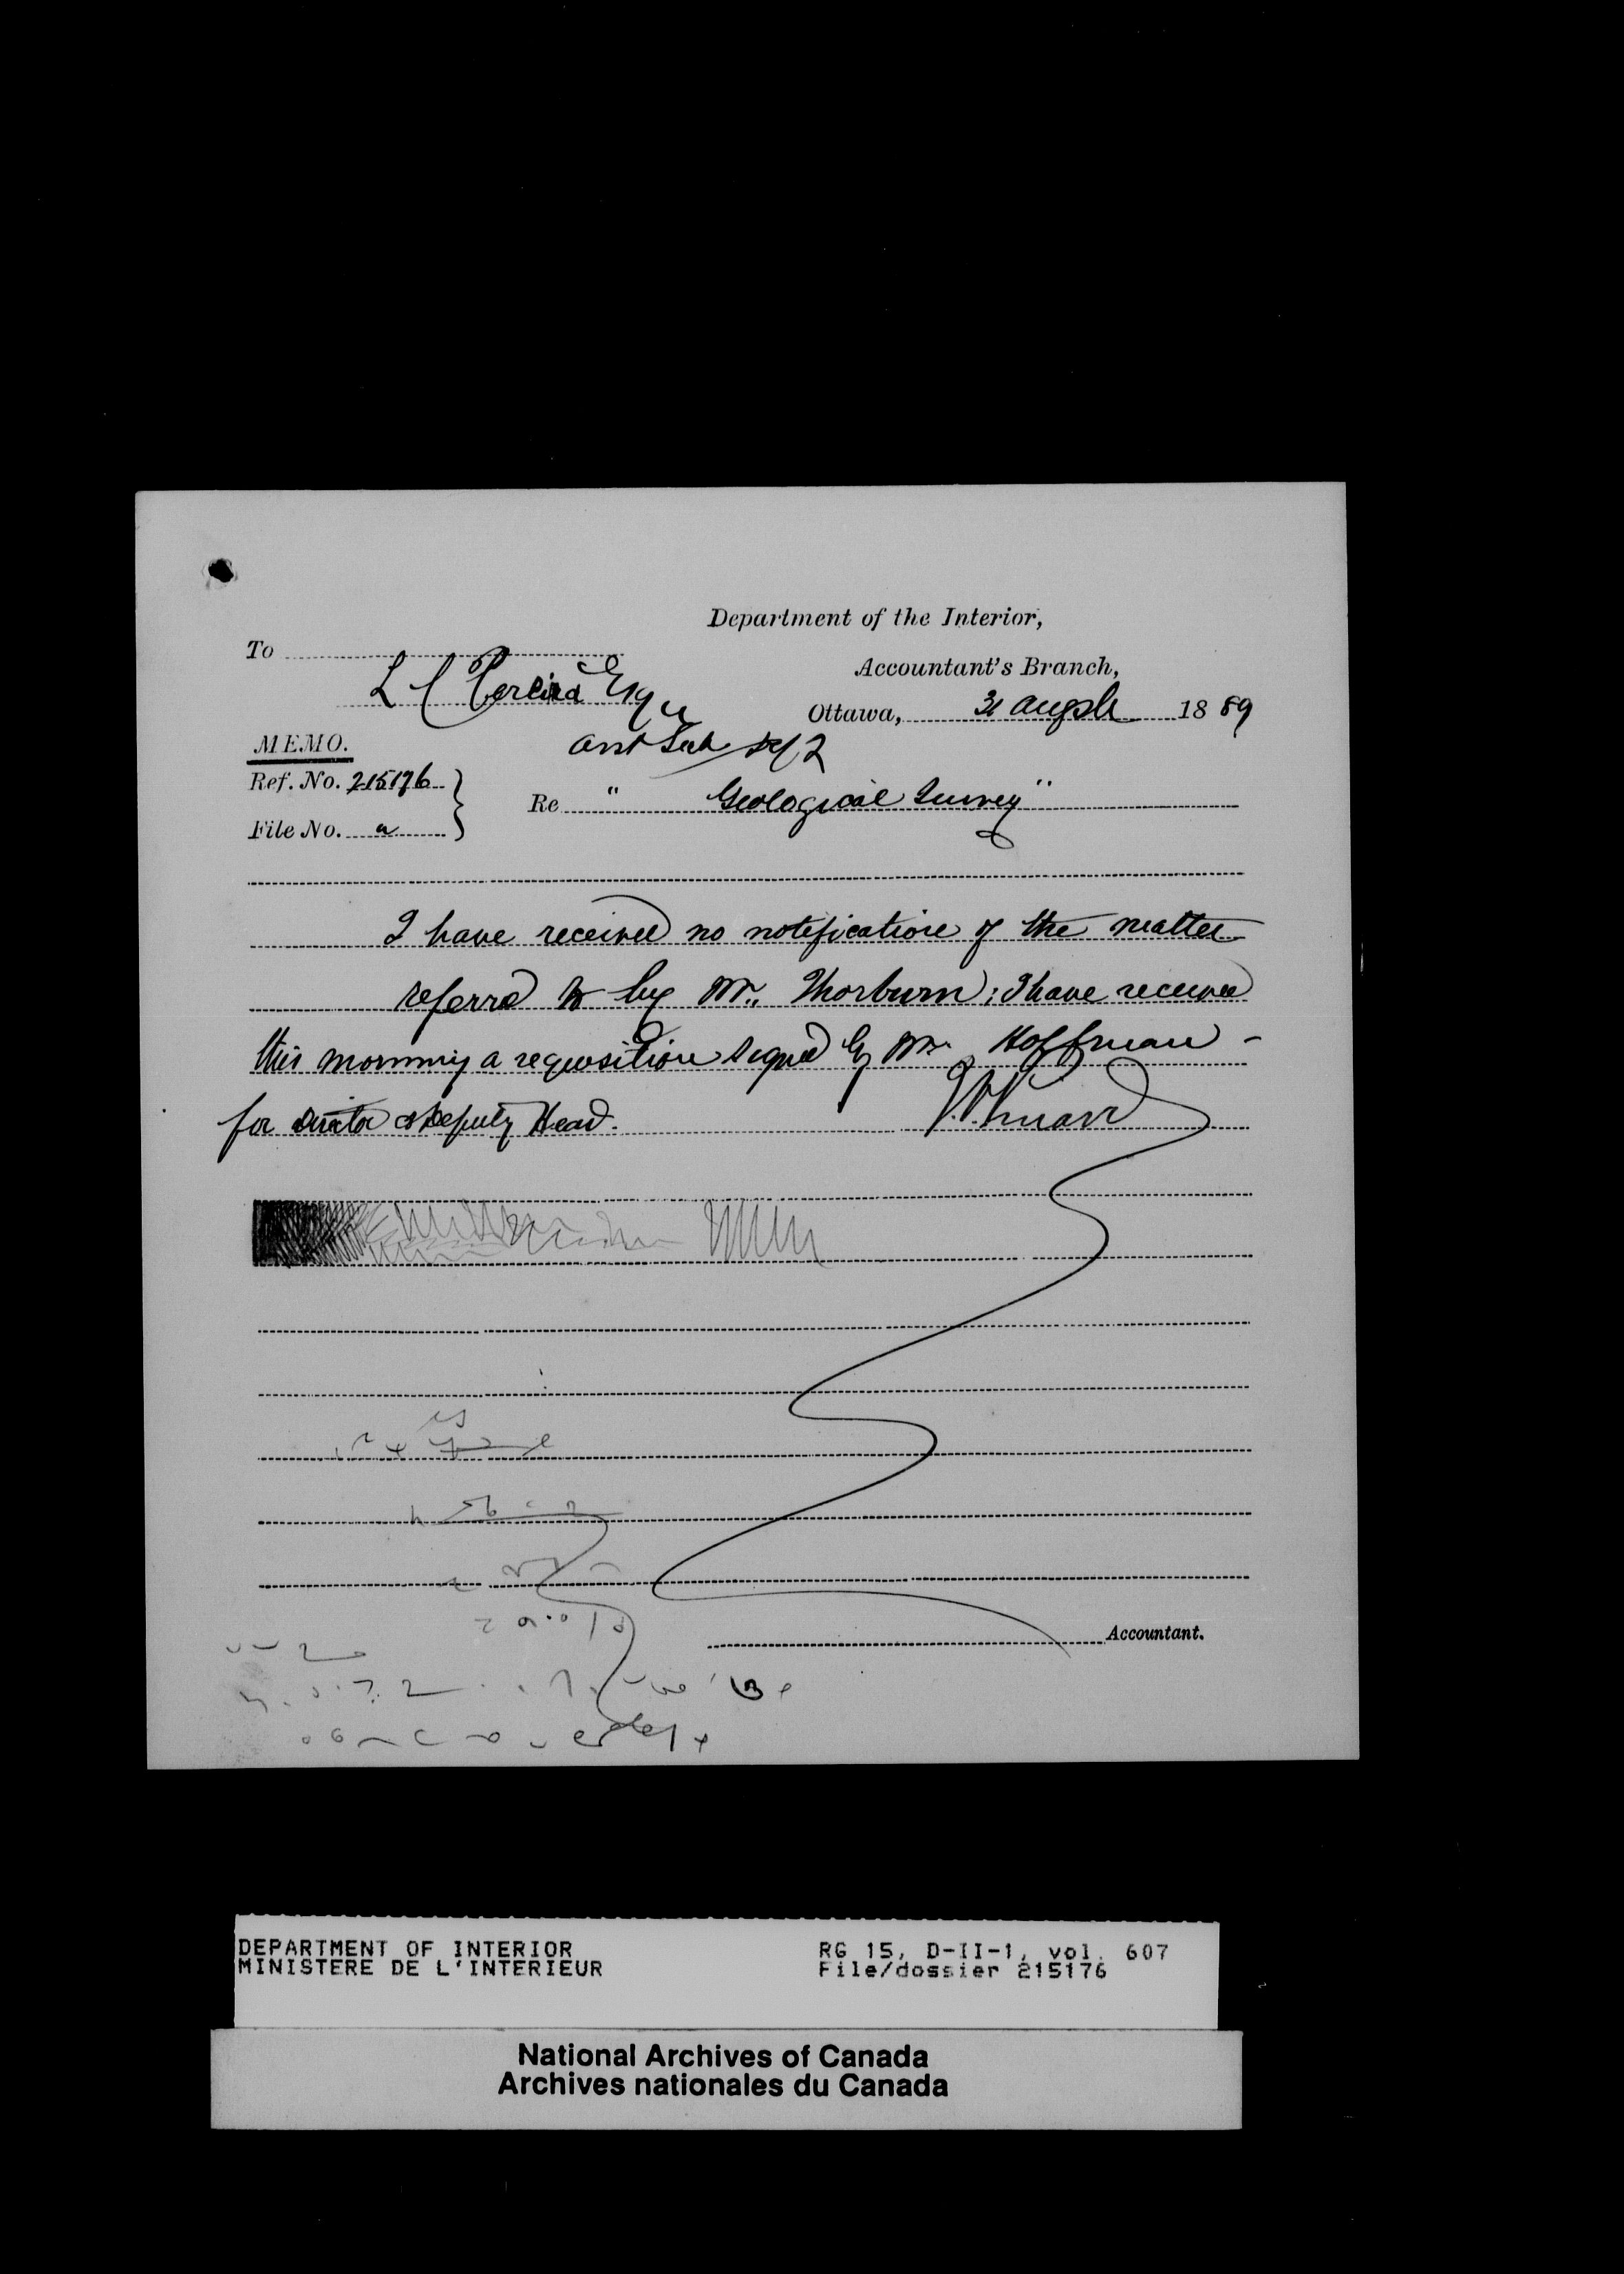 Department of the Interior,
Accountant's Branch,
To L C Pereira Esqr
Ottawa, 31 Augst 1889
MEMO.
Asst Sec
Ref. No. 215176
File No.
Re " Geological Survey"
I have received no notification of the matter
referred to by Mr. Thorburn; I have received
this morning a requisition signed by Mr. Hoffman -
for Director & Deputy Head.
Accountant.
DEPARTMENT OF INTERIOR
MINISTERE DE L'INTERIEUR
RG 15, D-II-1, vol. 607
File/dossier 215176
National Archives of Canada
Archives nationales du Canada